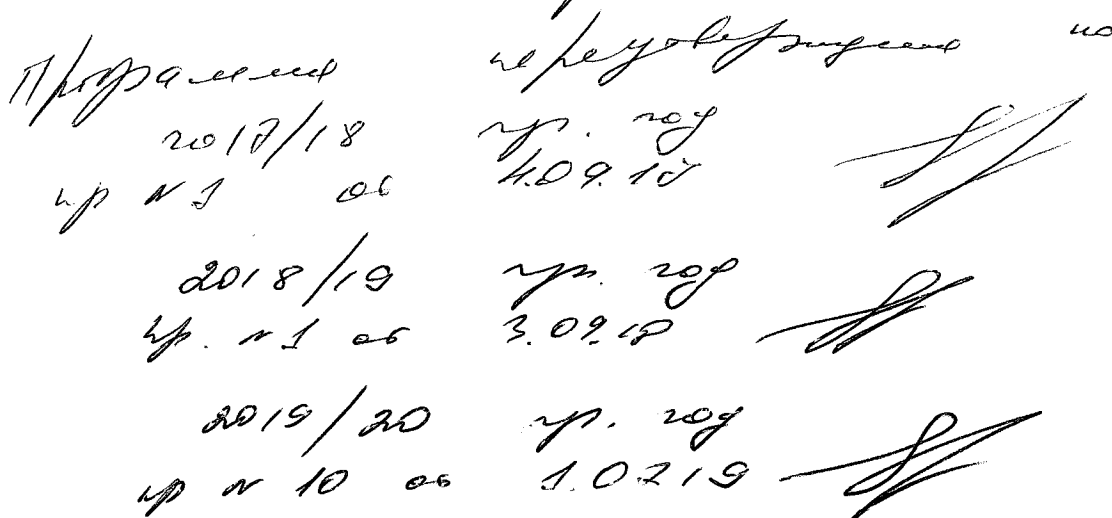 Программа переутверждена на
2017/18 уч. год
пр N 1 от 4.09.17
2018/19 уч. год
пр. N 1 от 3.09.18
2019/20 уч. год
пр N 10 от 1.07.19